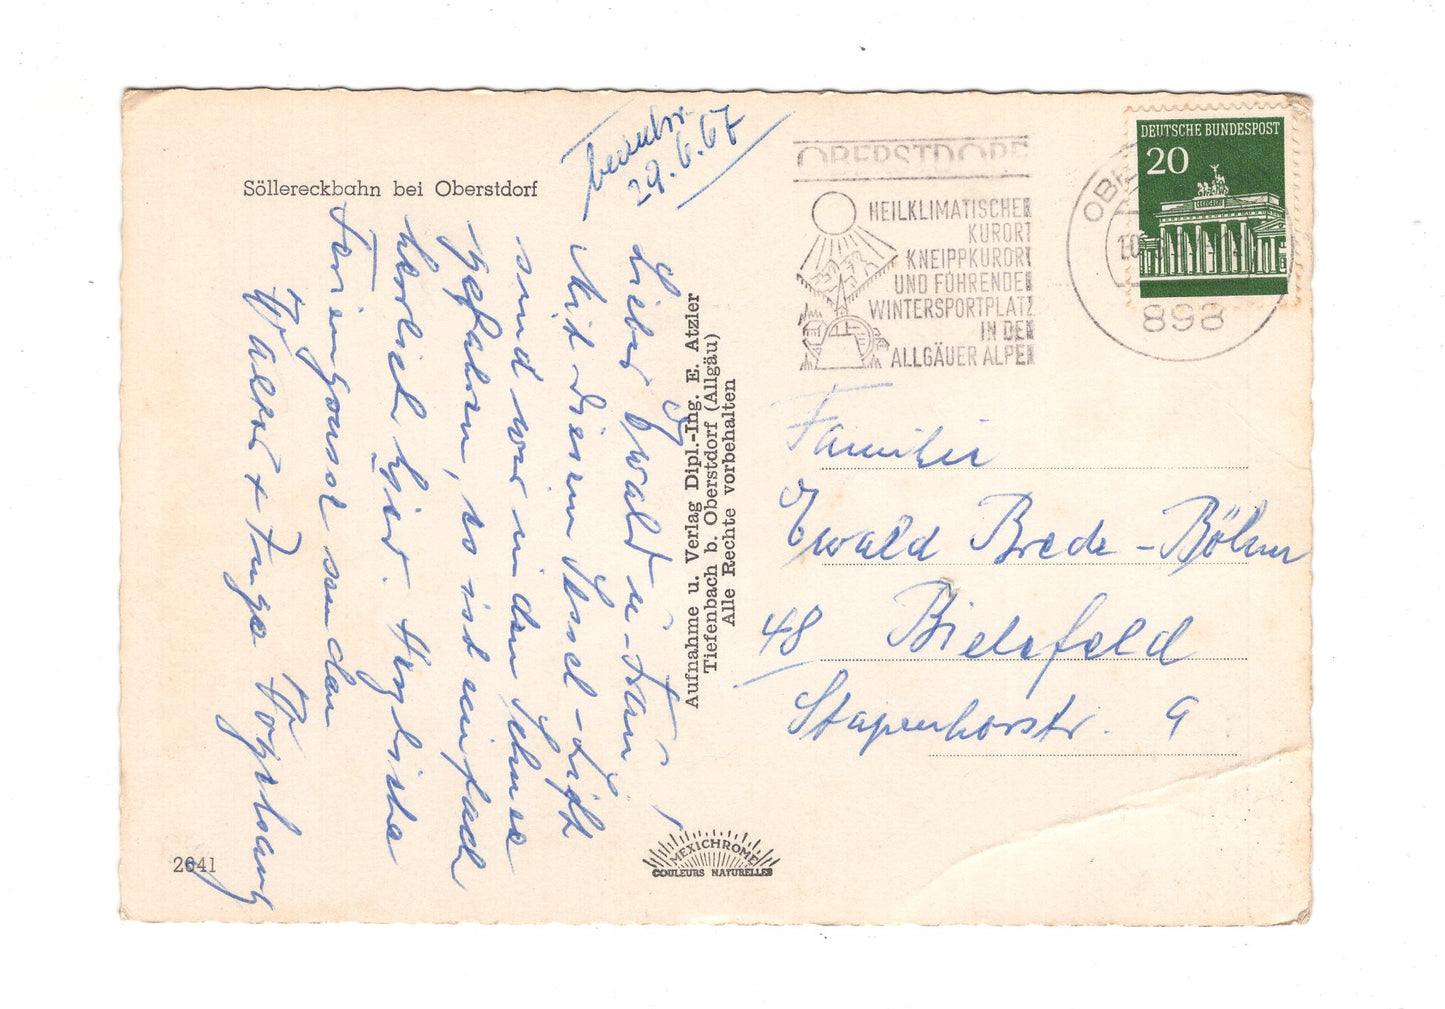 Söllereckbahn bei Oberstdorf
29.6.67
Lieber Ewald u. Frau!
Mit diesem Sessel-Lift
sind wir in den Schnee
gefahren, es ist einfach
herrlich hier. Herzliche
Feriengrüsse senden
Walter + Inge Vogelsang
Aufnahme u. Verlag Dipl.-Ing. E. Atzler
Tiefenbach b. Oberstdorf (Allgäu)
Alle Rechte vorbehalten
2641
MEXICHROME
COULEURS NATURELLES
OBERSTDORF
HEILKLIMATISCHER
KURORT
KNEIPPKURORT
UND FÜHRENDER
WINTERSPORTPLATZ
IN DEN
ALLGÄUER ALPEN
898
DEUTSCHE BUNDESPOST
20
Familie
Ewald Brede-Böhm
48 Bielefeld
Stapenhorstr. 9